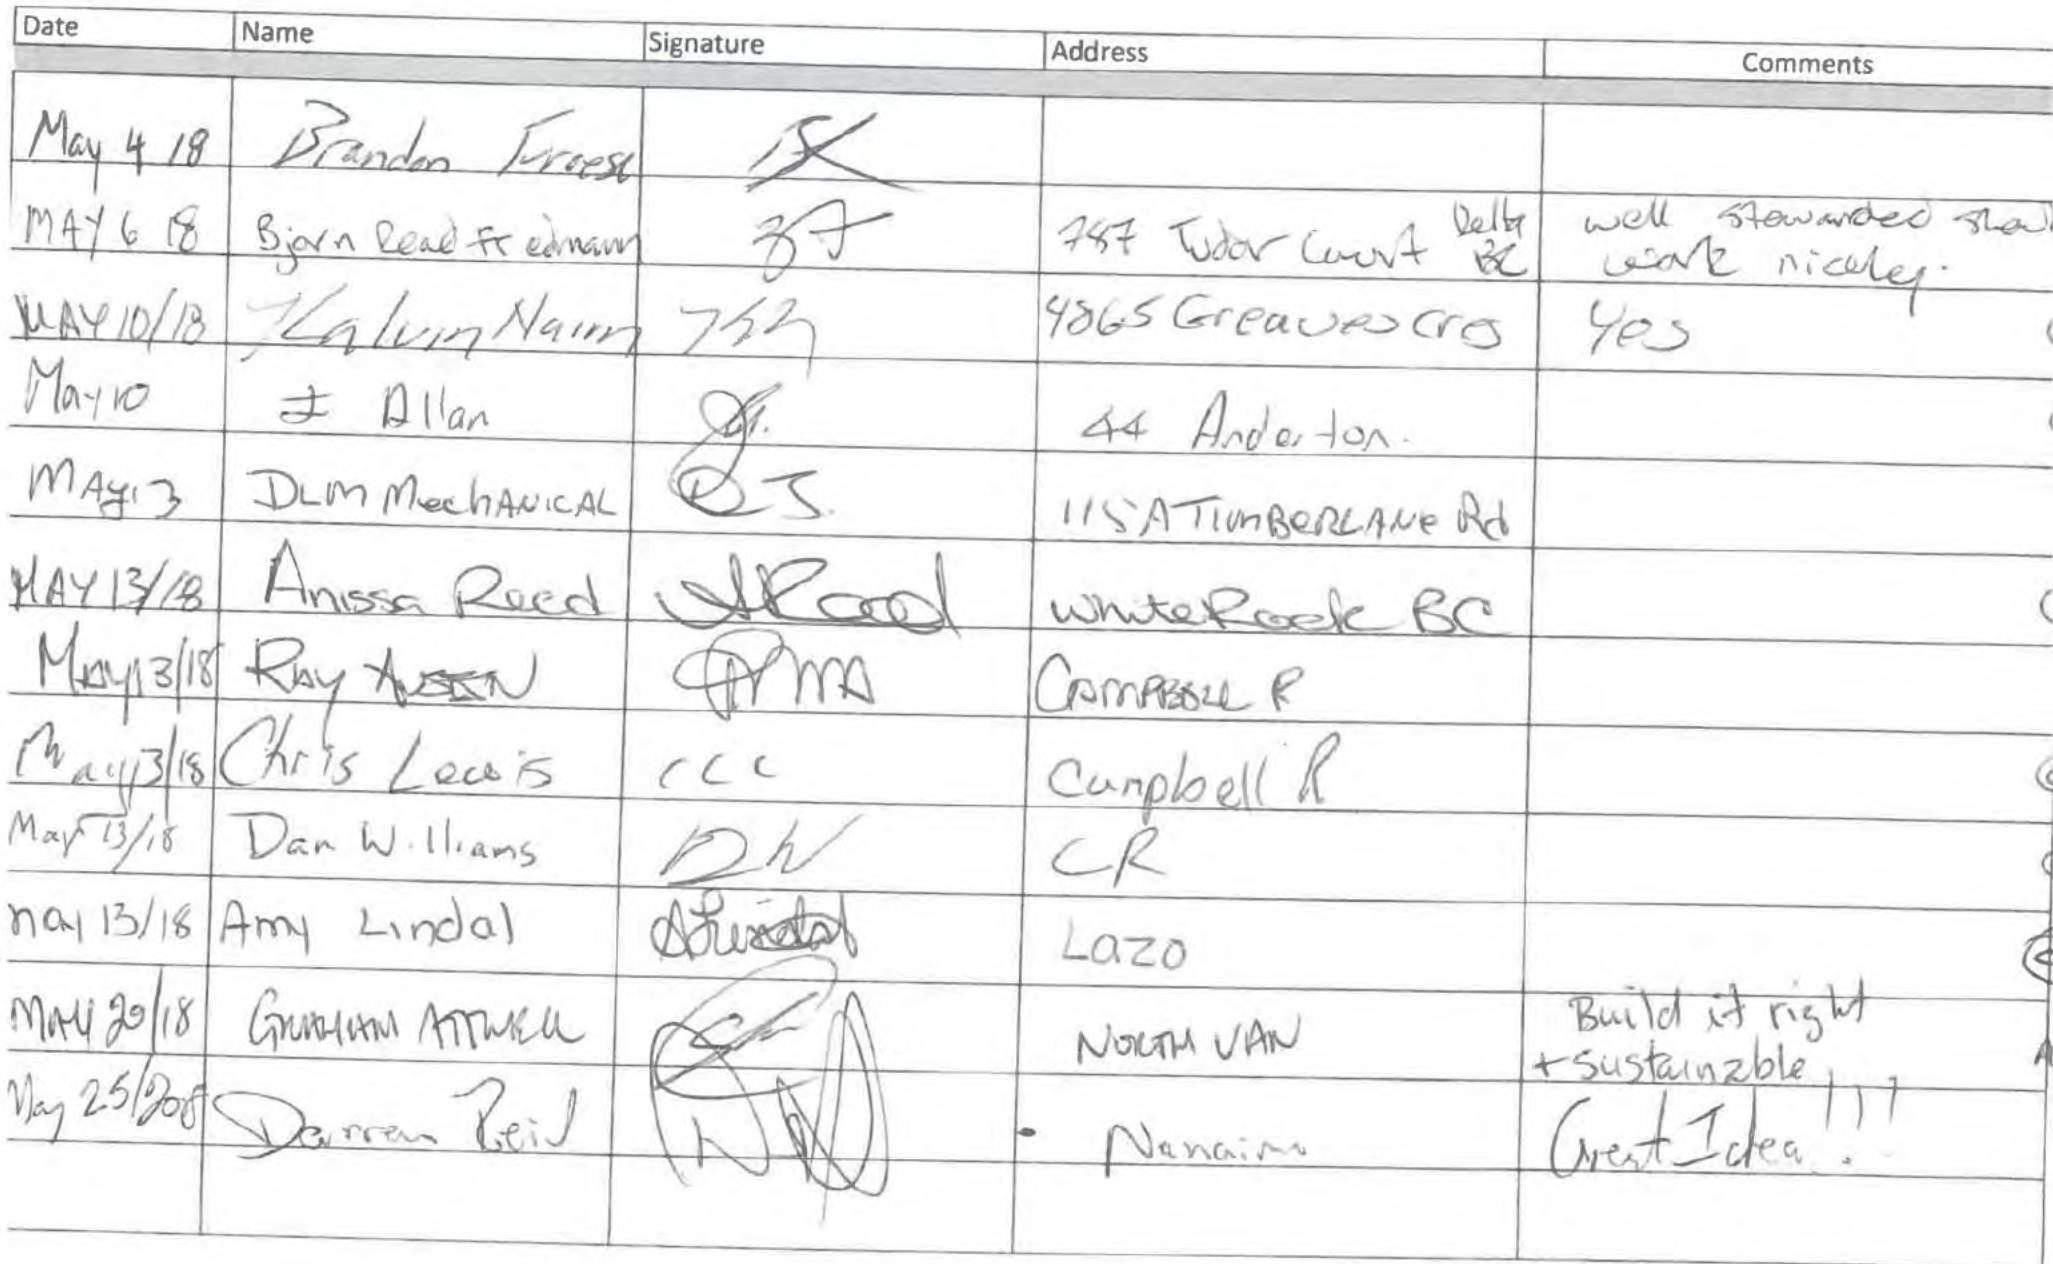 Date Name Signature Address Comments
May 4 18 Brandon
MAY 6 18 Bjorn Read Friedmann 787 Tudor Court Delta BC well stewarded
work nicely.
MAY 10/18 Kalvin Nairn 4865 Greaves Cres Yes
May 10 J Allan 44 Anderton.
MAY 13 DLM MechANICAL 115A TIMBERLANE Rd
MAY 13/18 Anissa Reed AReed White Rock BC
MAY 13/18 RAY AUSTIN CAMPBELL R
May 13/18 Chris Lewis CCC Campbell R
May 13/18 Dan Williams DW CR
May 13/18 Amy Lindal ALindal Lazo
MAY 20/18 GRAHAM ATTWELL NORTH VAN Build it right
+ sustainable
May 25/2018 Darren Reid Nanaimo Great Idea!!!